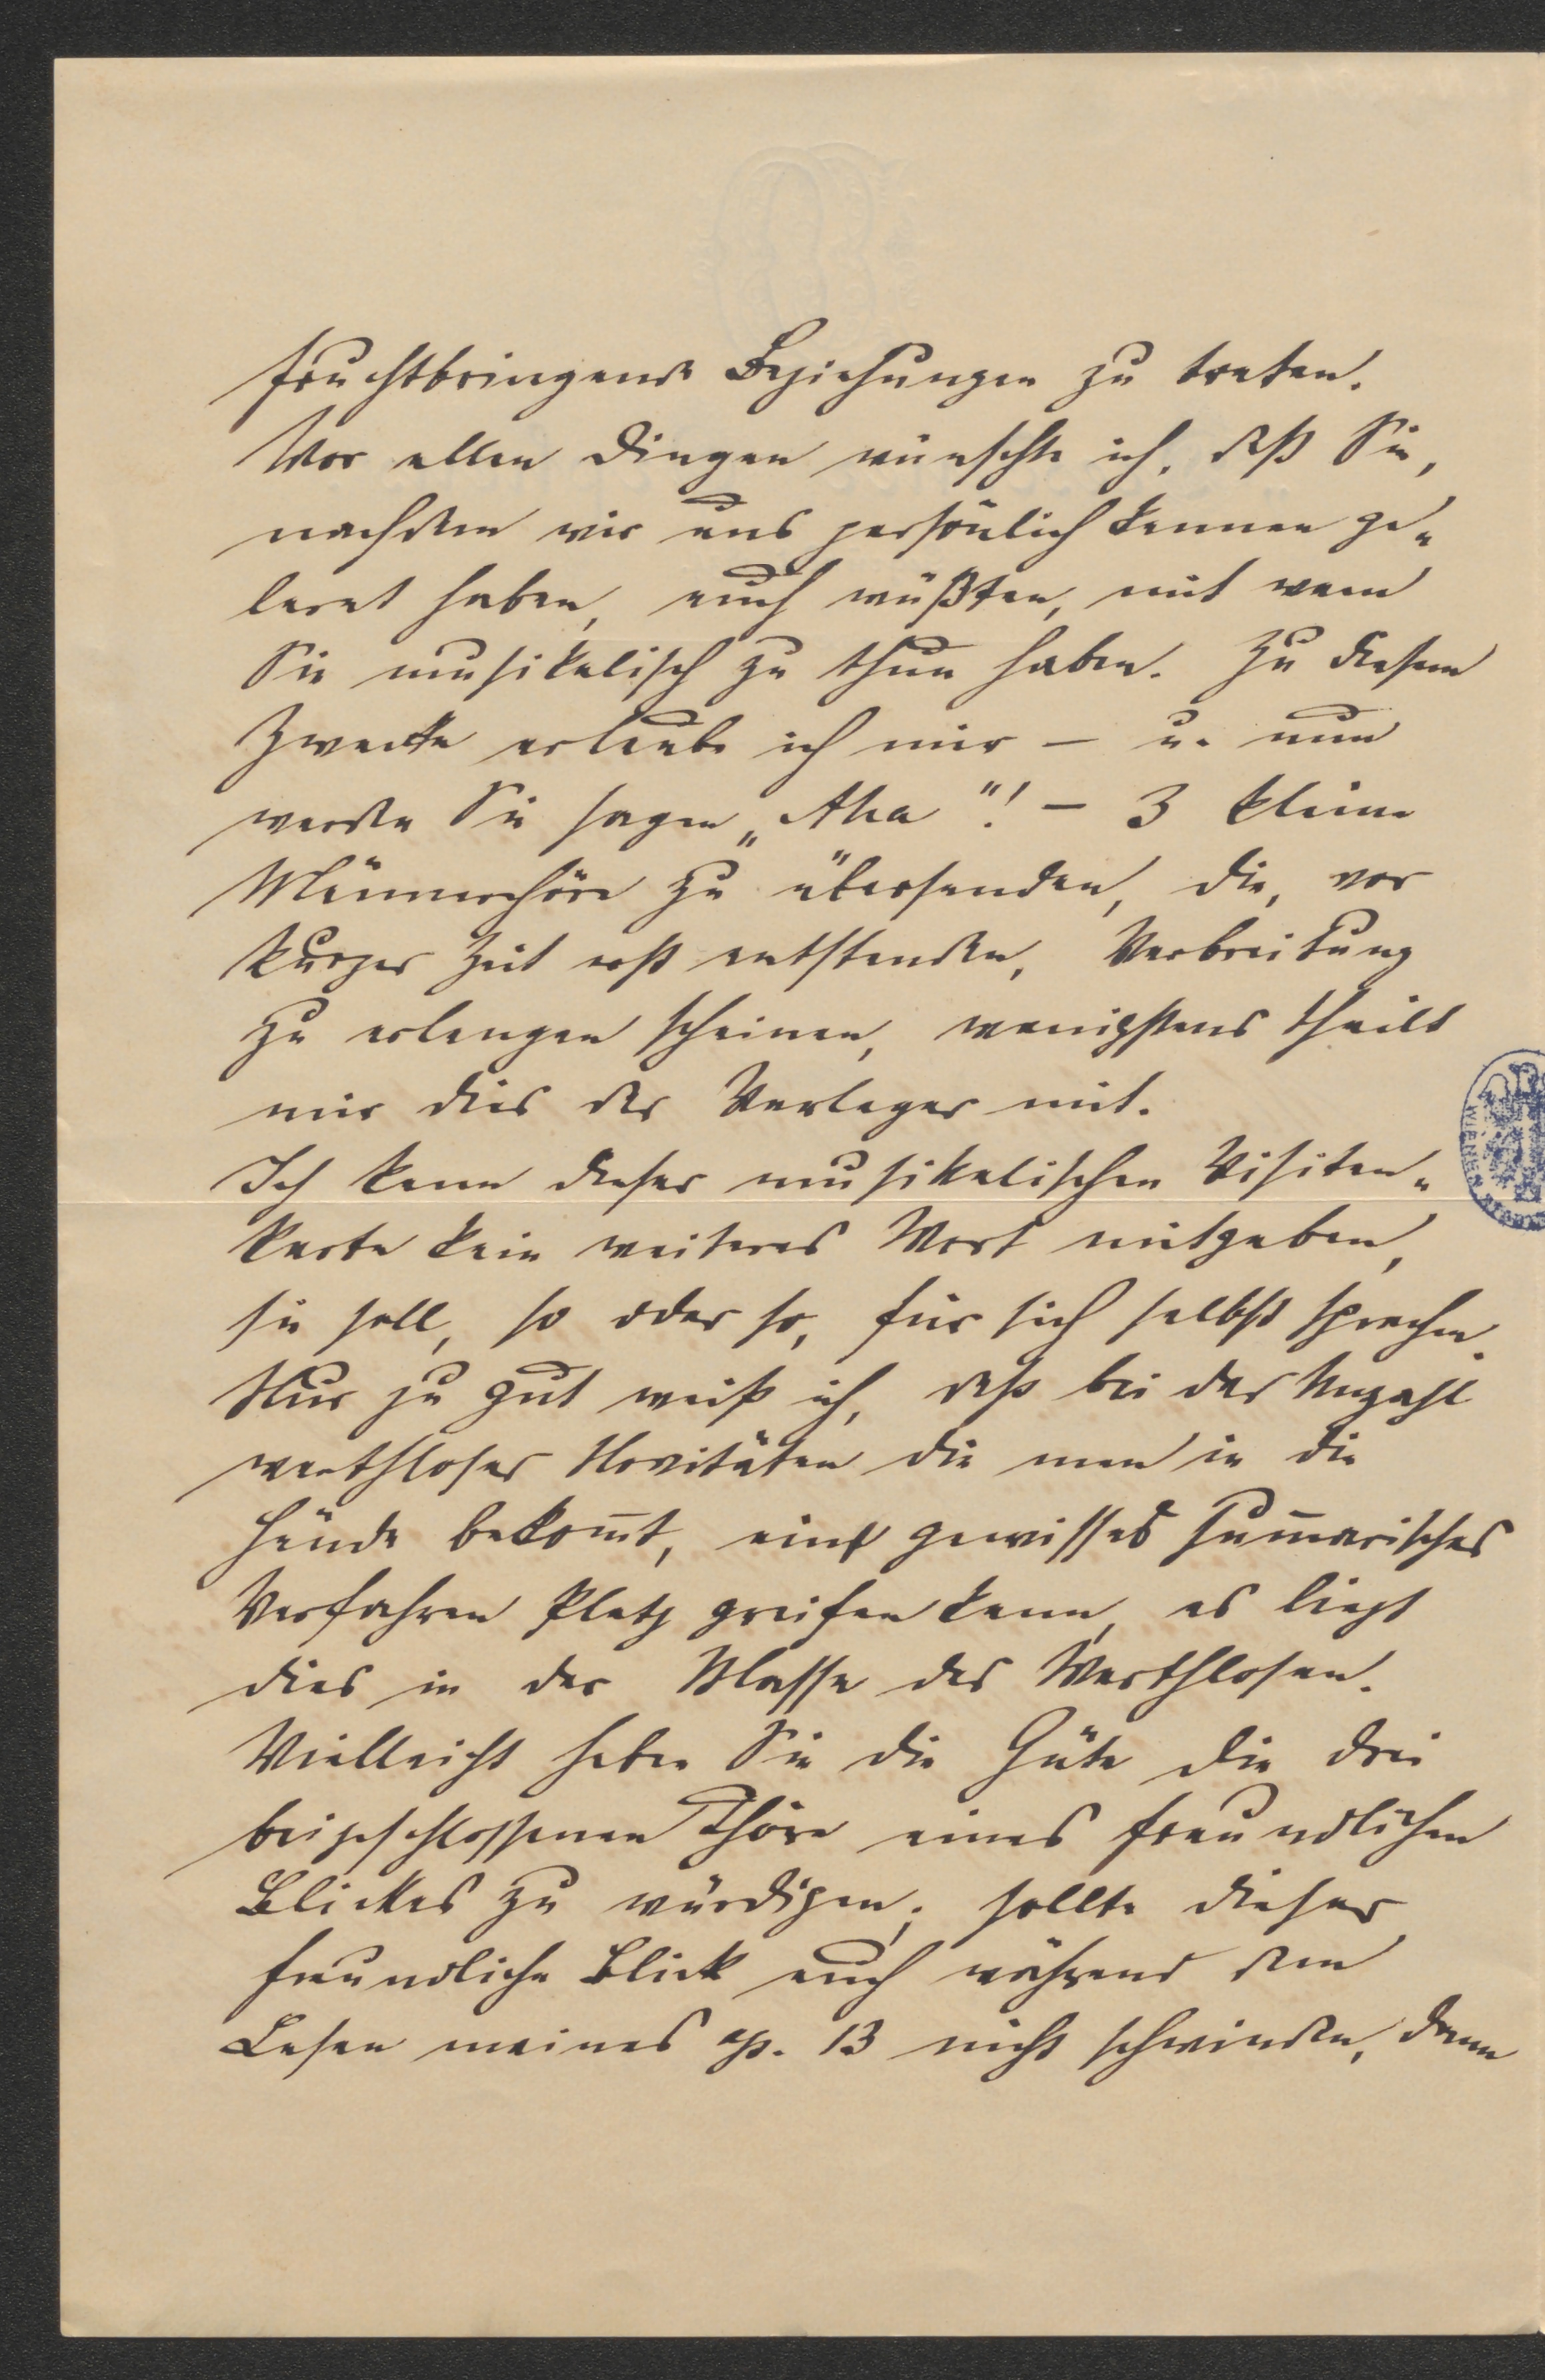 fruchtbringende Beziehungen zu treten.
Vor allen Dingen wünschte ich, daß Sie,
nachdem wir uns persönlich kennen ge„
lernt haben, auch wüßten, mit wem
Sie musikalisch zu thun haben. Zu diesem
Zwecke erlaube ich mir – u. nun
werden Sie sagen „Aha"! – 3 kleine
Männerchöre zu übersenden, die, vor
kurzer Zeit erst entstanden, Verbreitung
zu erlangen scheinen, wenigstens theilt
mir dies der Verleger mit.
Ich kann dieser musikalischen Visiten„
karte kein weiteres Wort mitgeben,
sie soll, so oder so, für sich selbst sprechen.
Nur zu gut weiß ich, daß bei der Unzahl
werthloser Novitäten die man in die
Hände bekom̄t, ein gewisses sum̄arisches
Verfahren Platz greifen kann, es liegt
dies in der Masse des Werthlosen.
Vielleicht haben Sie die Güte die drei
beigeschlossenen Chöre eines freundlichen
Blickes zu würdigen; sollte dieser
freundliche Blick auch während dem
Lesen meines op. 13 nicht schwinden, dann